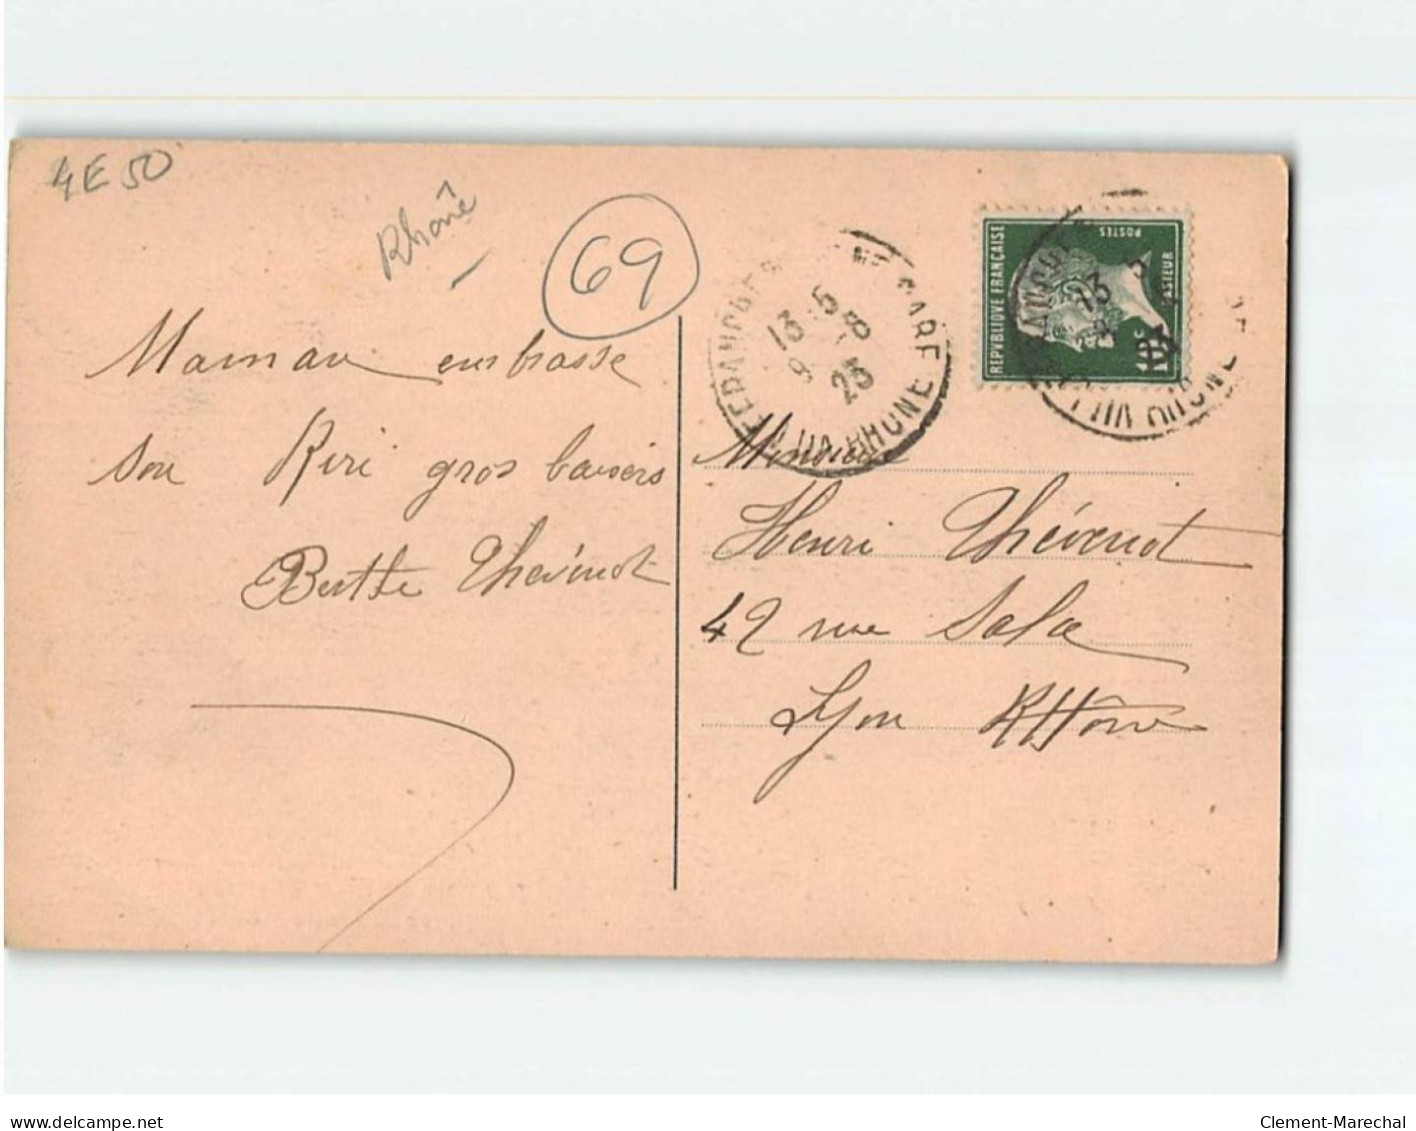 4E50
Rhône
69
13 5
9 8
25
GARE
RHONE
REPVBLIQVE FRANÇAISE
POSTES
PASTEUR
10c
13
RHONE
Maman embrasse
son Riri gros baisers
Berthe Thévenot
Monsieur
Henri Thévenot
42 rue Sala
Lyon Rhône
Clement-Marechal